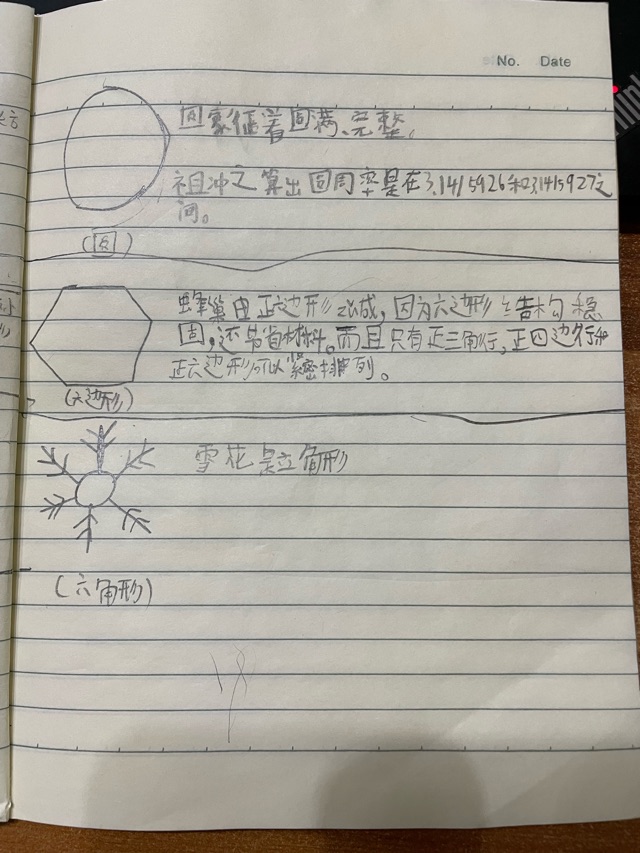 No. Date
圆象征着圆满、完整。
祖冲之算出圆周率是在3.1415926和3.1415927之
间。
(圆)
蜂巢由正六边形组成，因为六边形结构稳
固，还节省材料。而且只有正三角行，正四边行和
正六边形可以紧密排列。
(六边形)
雪花是六角形
(六角形)